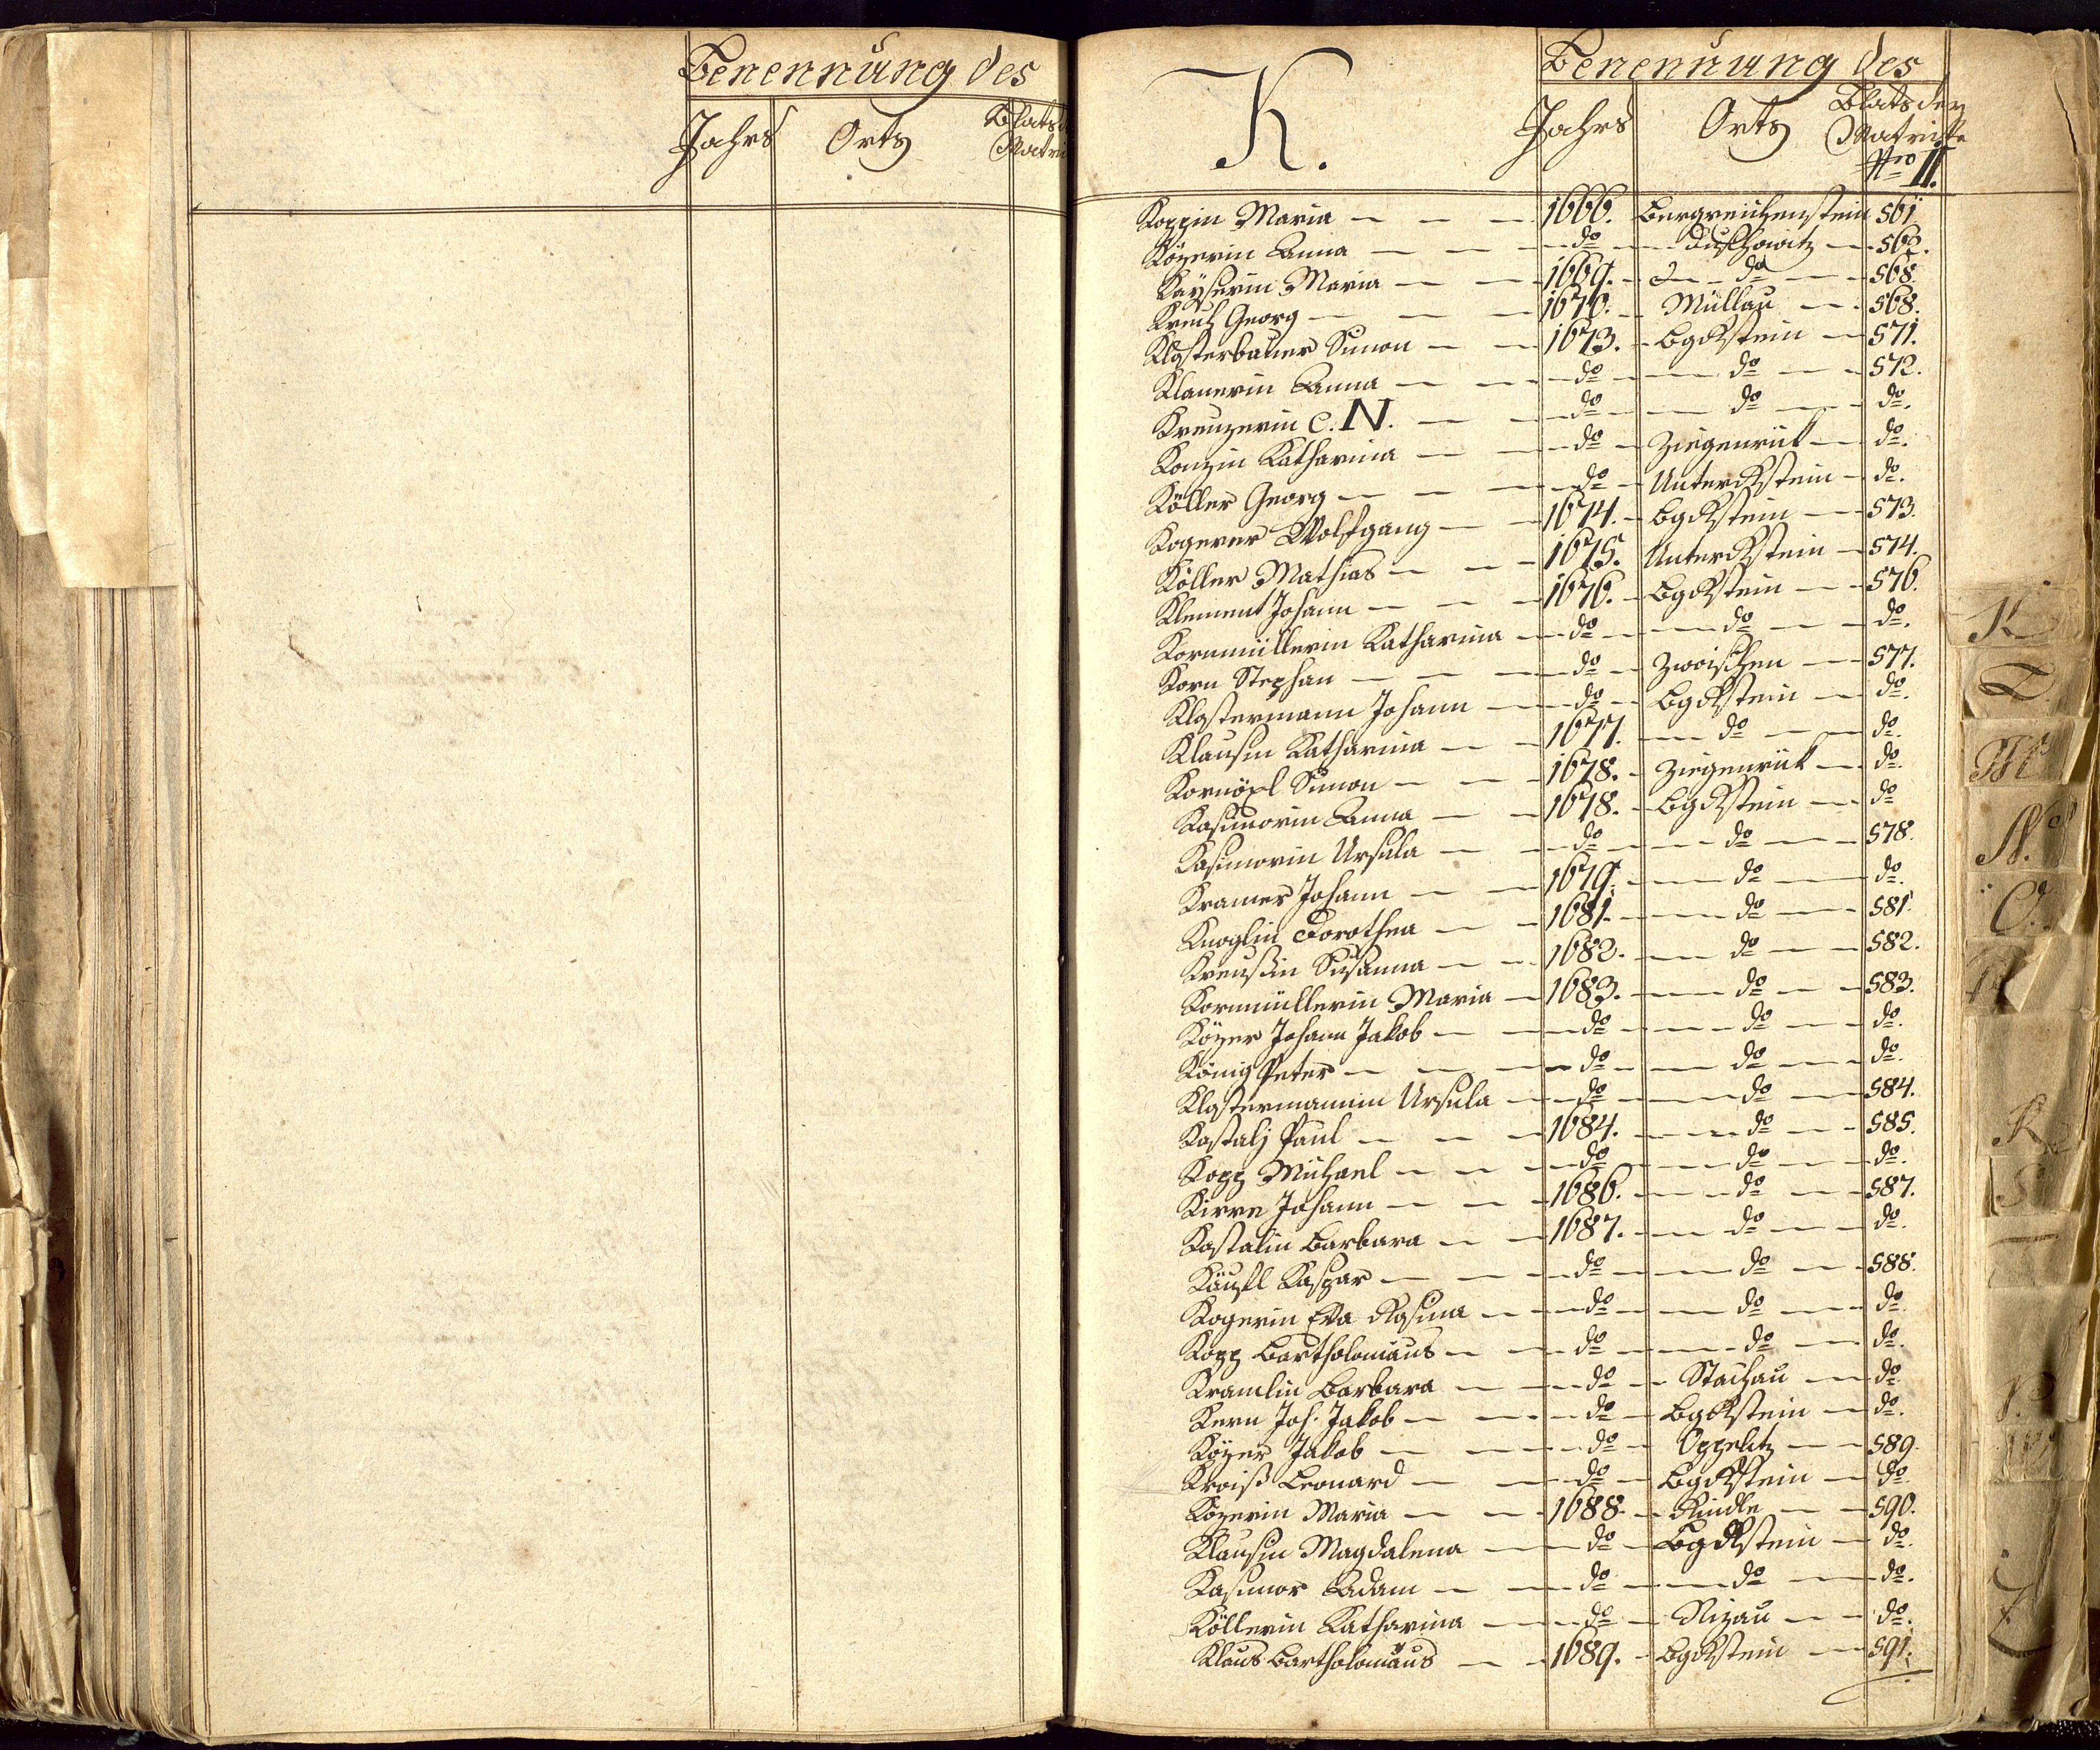 Benennung des
Jahrs Orts Blats
K.
Benennung des
Jahrs Orts Blats der
Matrikke
Nro II.
Koppin Maria — — — 1666. Bergreichenstein 561.
Közerin Anna — — — do — Duschowitz — 568.
Kayserin Maria — — 1669. — do — 568.
Georg — — — 1670. — Müllau — 568.
Klosterbauer Simon — — 1673. — BgRstein — 571.
Klanerin Anna — — do — do — 572.
Kreuzerin C. N. — — do — do — do.
Konzin Katharina — — do — Ziegenruk — do.
Köller Georg — — — do — UnterRstein — do.
Kogerer Wolfgang — — 1674. — BgRstein — 573.
Köller Mathias — — 1675. UnterRstein — 574.
Klement Johann — — — 1676. — BgRstein — 576.
Kornmüllerin Katharina — do — do — do.
Korn Stephan — — — do — Zwoischen — 577.
Klostermann Johann — do — BgRstein — do.
Klausin Katharina — — 1677. — do — do.
Simon — — 1678. — Ziegenruk — do.
Kasimorin Anna — — 1678. — BgRstein — do
Kasimorin Ursula — — do — do — 578.
Kramer Johann — — 1679. — do — do.
Knoglin Dorothea — — 1681. — do — 581.
Kreussin Susanna — — 1682. — do — 582.
Kornmüllerin Maria — 1683. — do — 583.
Közer Johann Jakob — — do — do — do.
König Peter — — — do — do — do.
Klostermannin Ursula — do — do — 584.
Kostalj Paul — — — 1684. — do — 585.
Kopp Michael — — — do — do — do.
Kirre Johann — — — 1686. — do — 587.
Kostalin Barbara — — 1687. — do — do.
Kaspar — — — do — do — 588.
Kogerin Eva Rosina — — do — do — do.
Kopp Bartholomäus — — do — do — do.
Kramlin Barbara — — do — Stachau — do
Kern Joh. Jakob — — do — BgRstein — do.
Közer Jakob — — — do — Oppelitz — 589.
Kroiß Leonard — — do — BgRstein — do.
Közerin Maria — — 1688. — Rindle — 590.
Klausin Magdalena — do — BgRstein — do.
Kasimor Adam — — do — do — do.
Köllerin Katharina — do — Nizau — do.
Klaus Bartholomäus — — 1689. — BgRstein — 591.
K
L
M
N.
O.
R
S